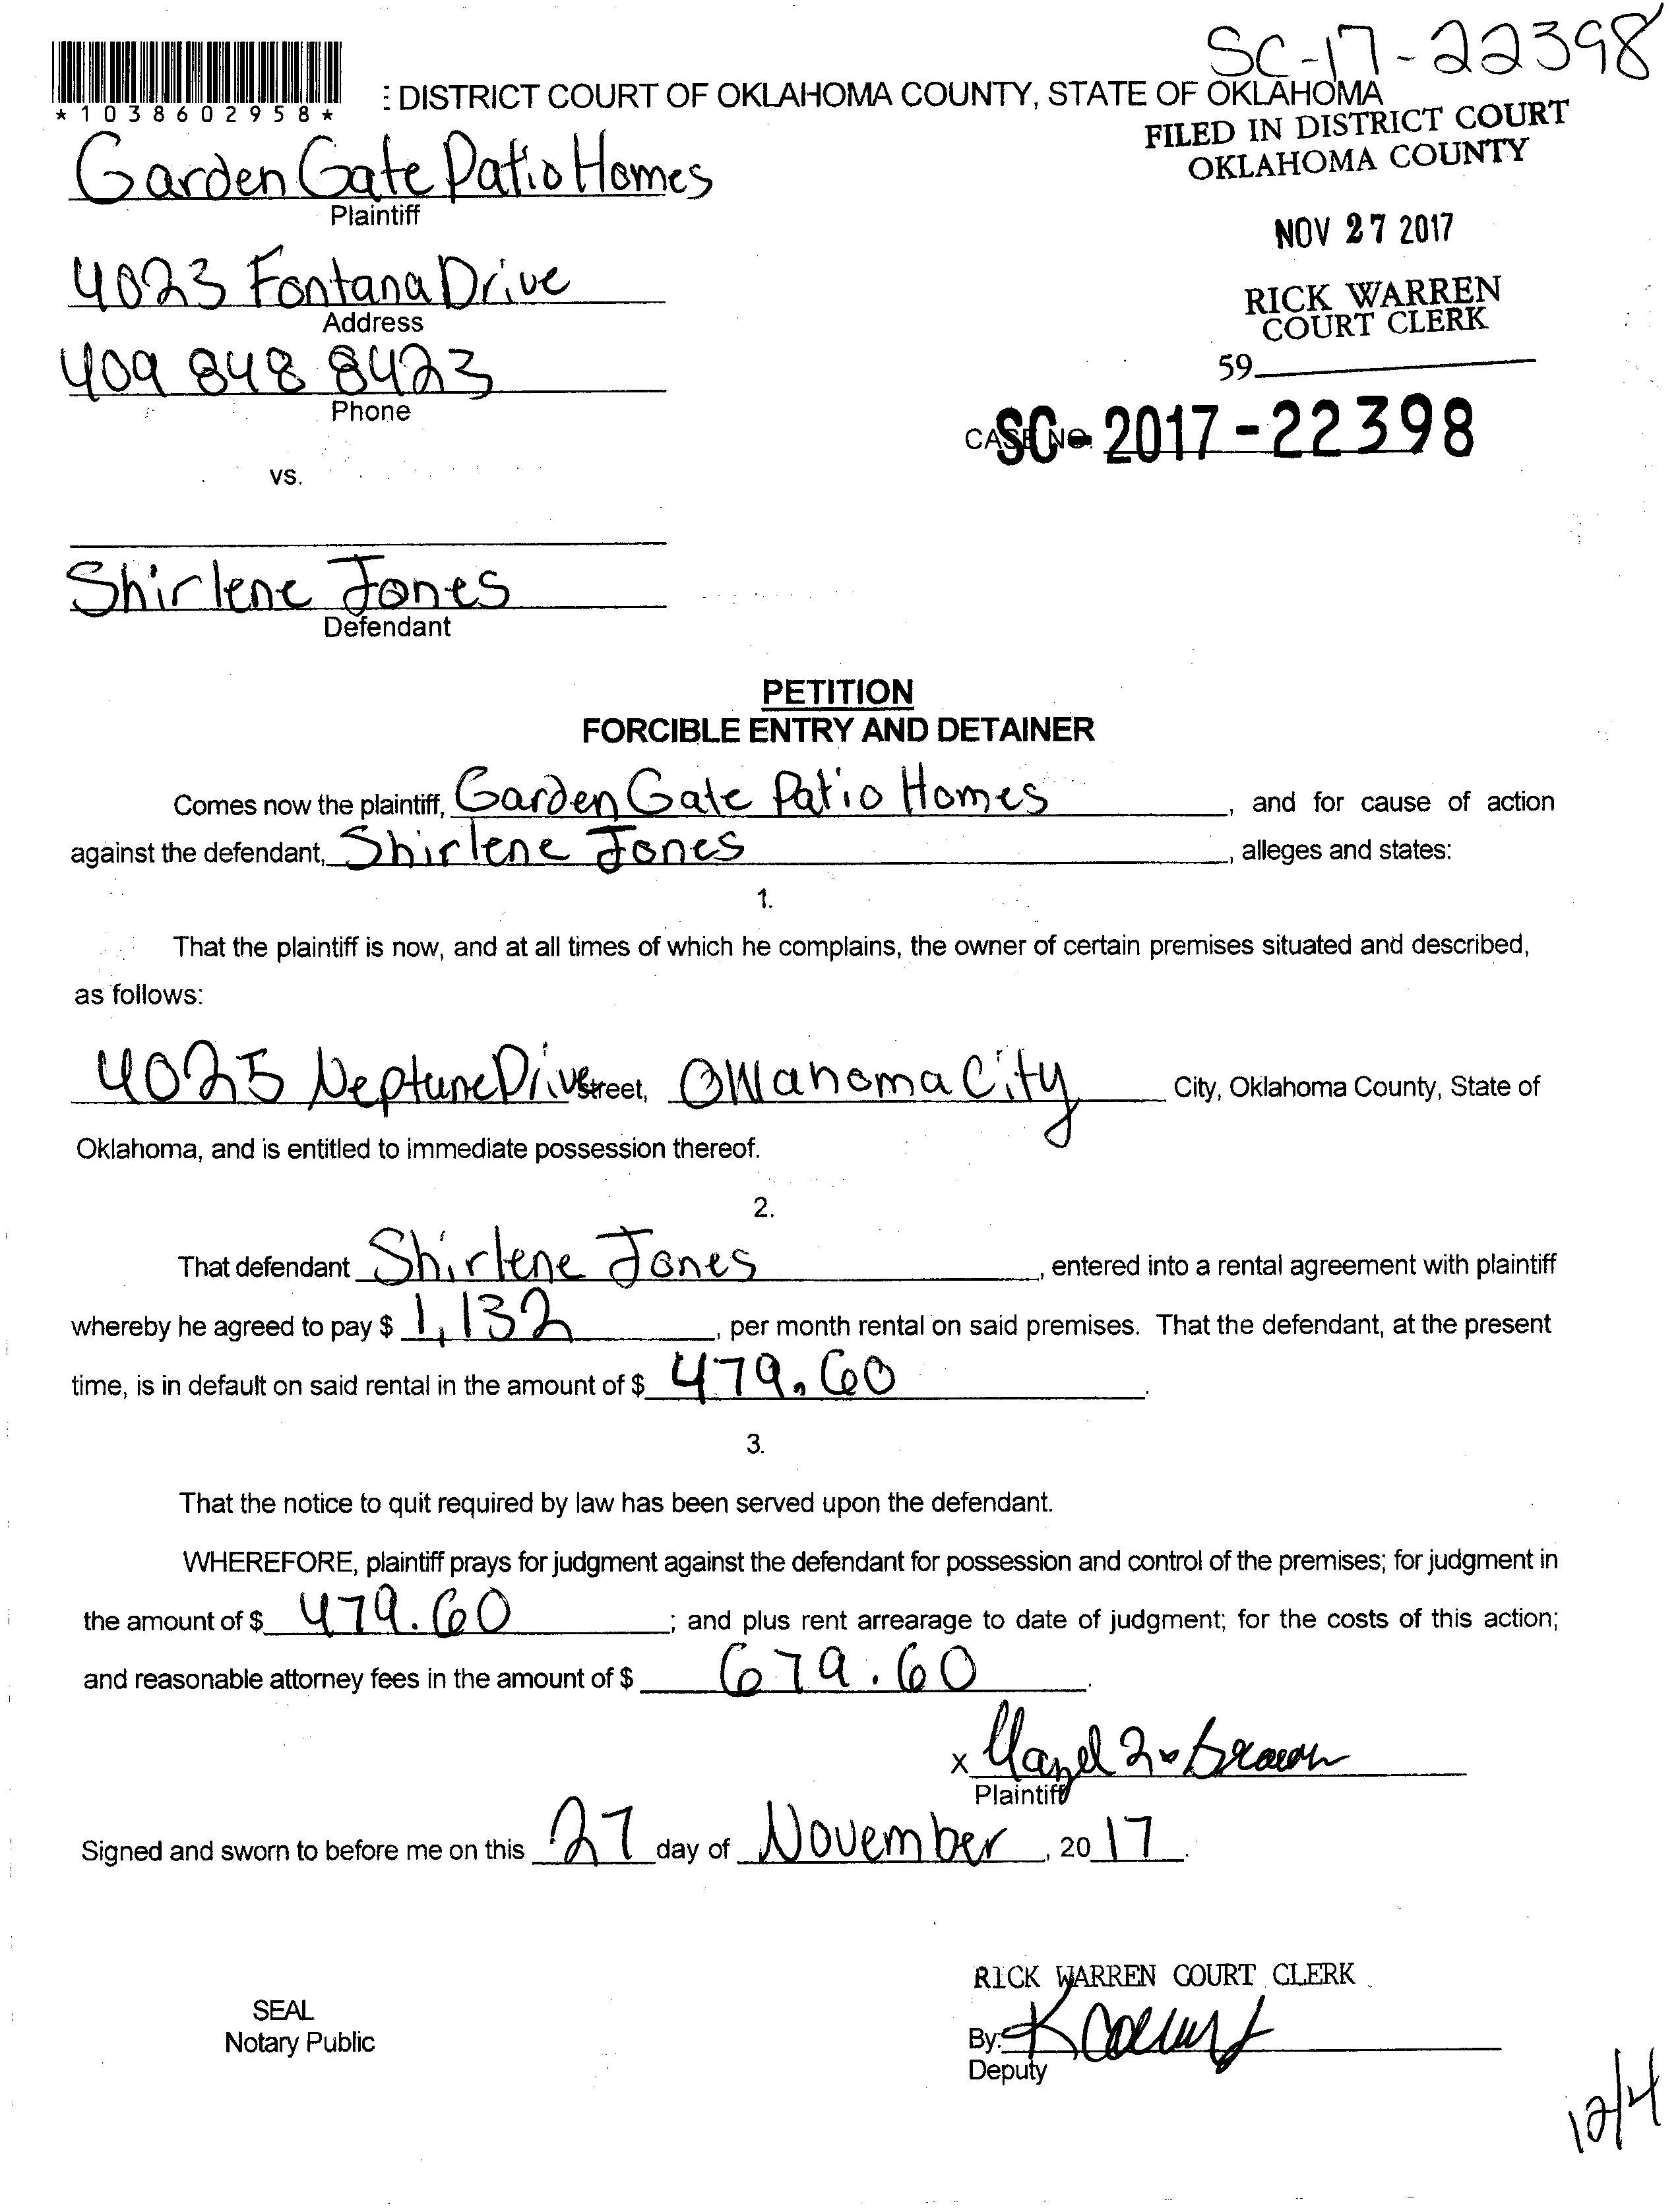 SC-17-22398
*1038602958*
: DISTRICT COURT OF OKLAHOMA COUNTY, STATE OF OKLAHOMA
FILED IN DISTRICT COURT
OKLAHOMA COUNTY
Garden Gate Patio Homes
Plaintiff
NOV 27 2017
4023 Fontana Drive
Address
RICK WARREN
COURT CLERK
409 848 8423
Phone
59
CASE NO. SC-2017-22398
vs.
Shirlene Jones
Defendant
PETITION
FORCIBLE ENTRY AND DETAINER
Comes now the plaintiff, Garden Gate Patio Homes, and for cause of action
against the defendant, Shirlene Jones, alleges and states:
1.
That the plaintiff is now, and at all times of which he complains, the owner of certain premises situated and described,
as follows:
4025 Neptune Drive Street, Oklahoma City City, Oklahoma County, State of
Oklahoma, and is entitled to immediate possession thereof.
2.
That defendant Shirlene Jones, entered into a rental agreement with plaintiff
whereby he agreed to pay $ 1,132, per month rental on said premises. That the defendant, at the present
time, is in default on said rental in the amount of $ 479.60.
3.
That the notice to quit required by law has been served upon the defendant.
WHEREFORE, plaintiff prays for judgment against the defendant for possession and control of the premises; for judgment in
the amount of $ 479.60; and plus rent arrearage to date of judgment; for the costs of this action;
and reasonable attorney fees in the amount of $ 679.60.
x
Plaintiff
Signed and sworn to before me on this 27 day of November, 2017.
RICK WARREN COURT CLERK
SEAL
Notary Public
By:
Deputy
12/4